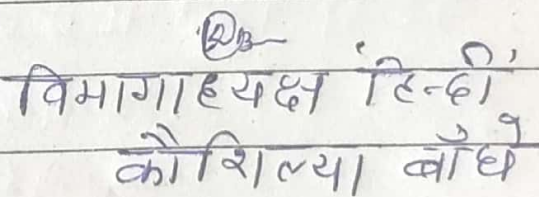 विभागाध्यक्ष 'हिन्दी'
कौशिल्या बाँधे